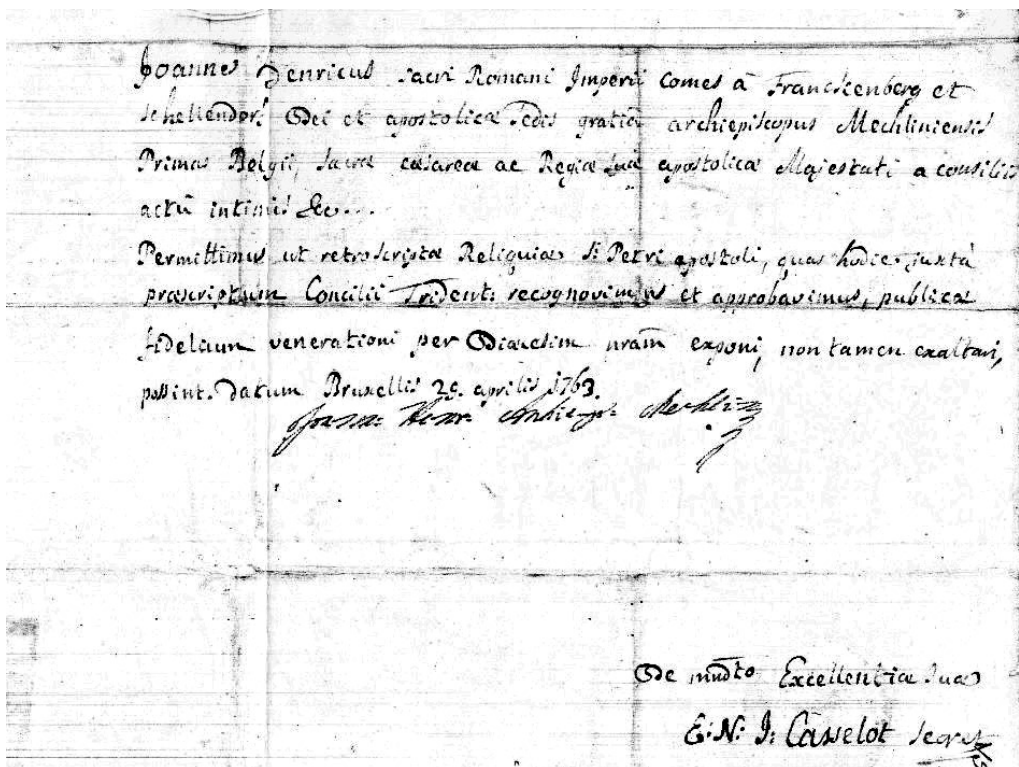 Joannes Henricus Sacri Romani Imperii Comes à Franckenberg et
Schellendorf Dei et apostolicæ Sedis gratiâ archiepiscopus Mechliniensis
Primas Belgii, Sacræ cæsareæ ac Regiæ Suæ apostolicæ Majestati a consiliis
actû intimis &c.
Permittimus ut retroscriptæ Reliquiæ Sti Petri apostoli, quas hodie juxtà
præscriptum Concilii Trident: recognovimus et approbavimus, publicæ
fidelium venerationi per Diœcesim nram exponi, non tamen exaltari,
possint. Datum Bruxellis aprilis 1763.
De mndto Excellentiæ Suæ
E: N: J: Casselot Secret